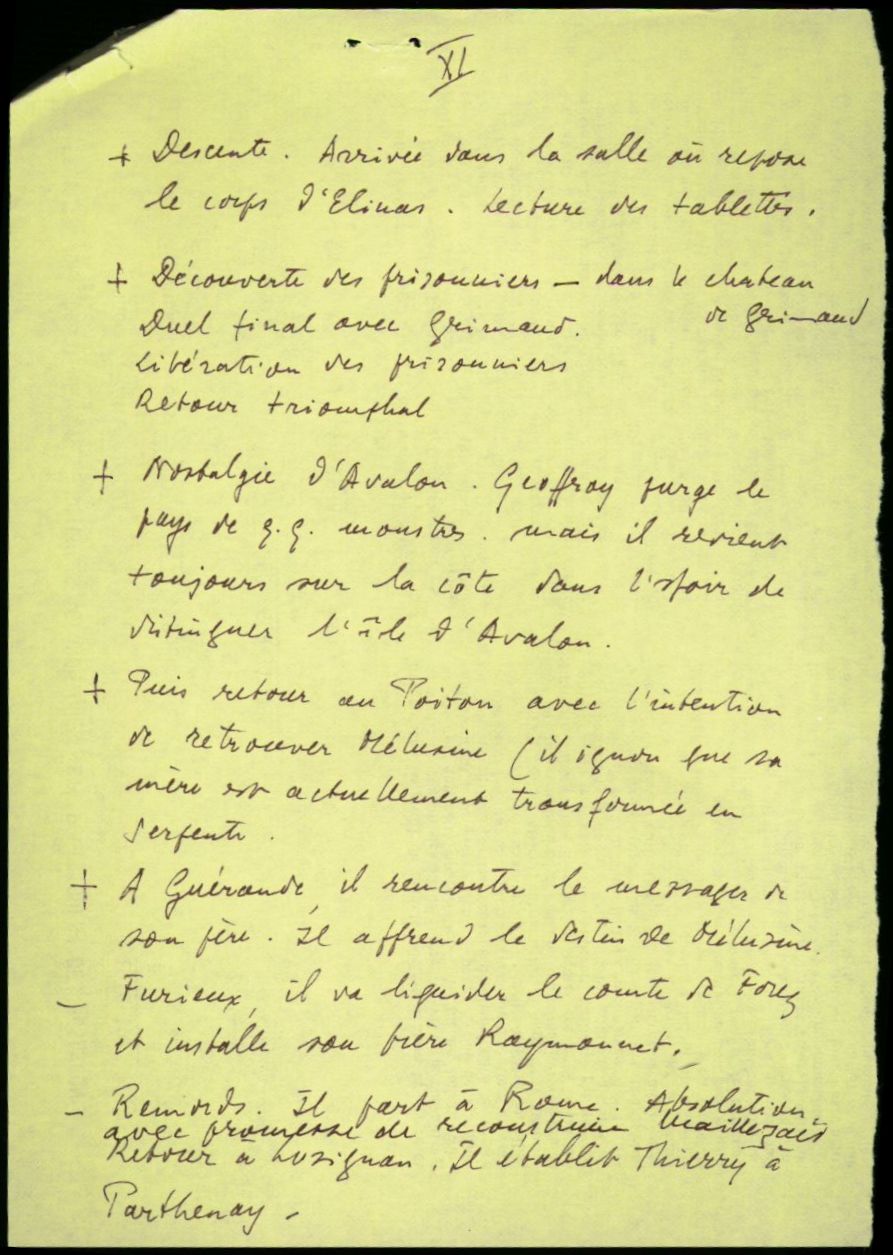 XI
+ Descente. Arrivée dans la salle où repose
le corps d'Elinas. Lecture des tablettes.
+ Découverte des prisonniers — dans le chateau
de Grimaud
Duel final avec Grimaud.
Libération des prisonniers
Retour triomphal
+ Nostalgie d'Avalon. Geoffroy purge le
pays de q.q. monstres. mais il revient
toujours sur la côte dans l'espoir de
distinguer l'île d'Avalon.
+ Puis retour en Poitou avec l'intention
de retrouver Mélusine (il ignore que sa
mère est actuellement transformée en
serpente.
+ A Guérande, il rencontre le messager de
son père. Il apprend le destin de Mélusine.
– Furieux, il va liquider le comte de Forez
et installe son frère Raymonnet.
– Remords. Il part à Rome. Absolution
avec promesse de reconstruire Maillezais
Retour à Lusignan. Il établit Thierry à
Parthenay –